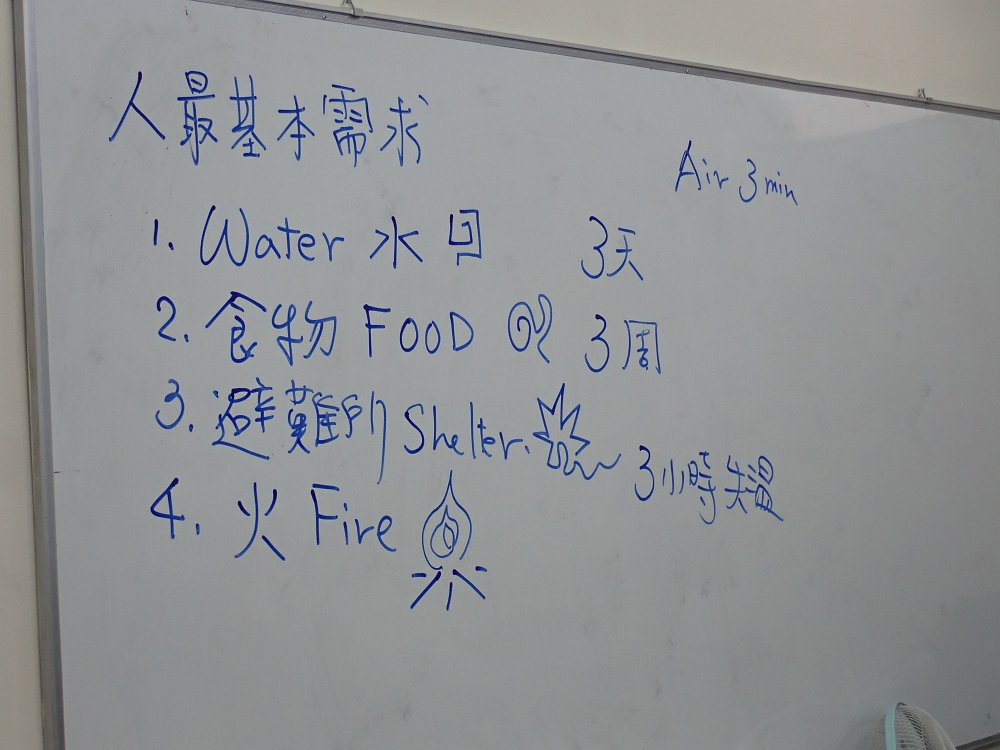 人最基本需求
Air 3 min
1. Water 水 3天
2. 食物 FOOD 3周
3. 避難所 Shelter. 3小時失溫
4. 火 Fire